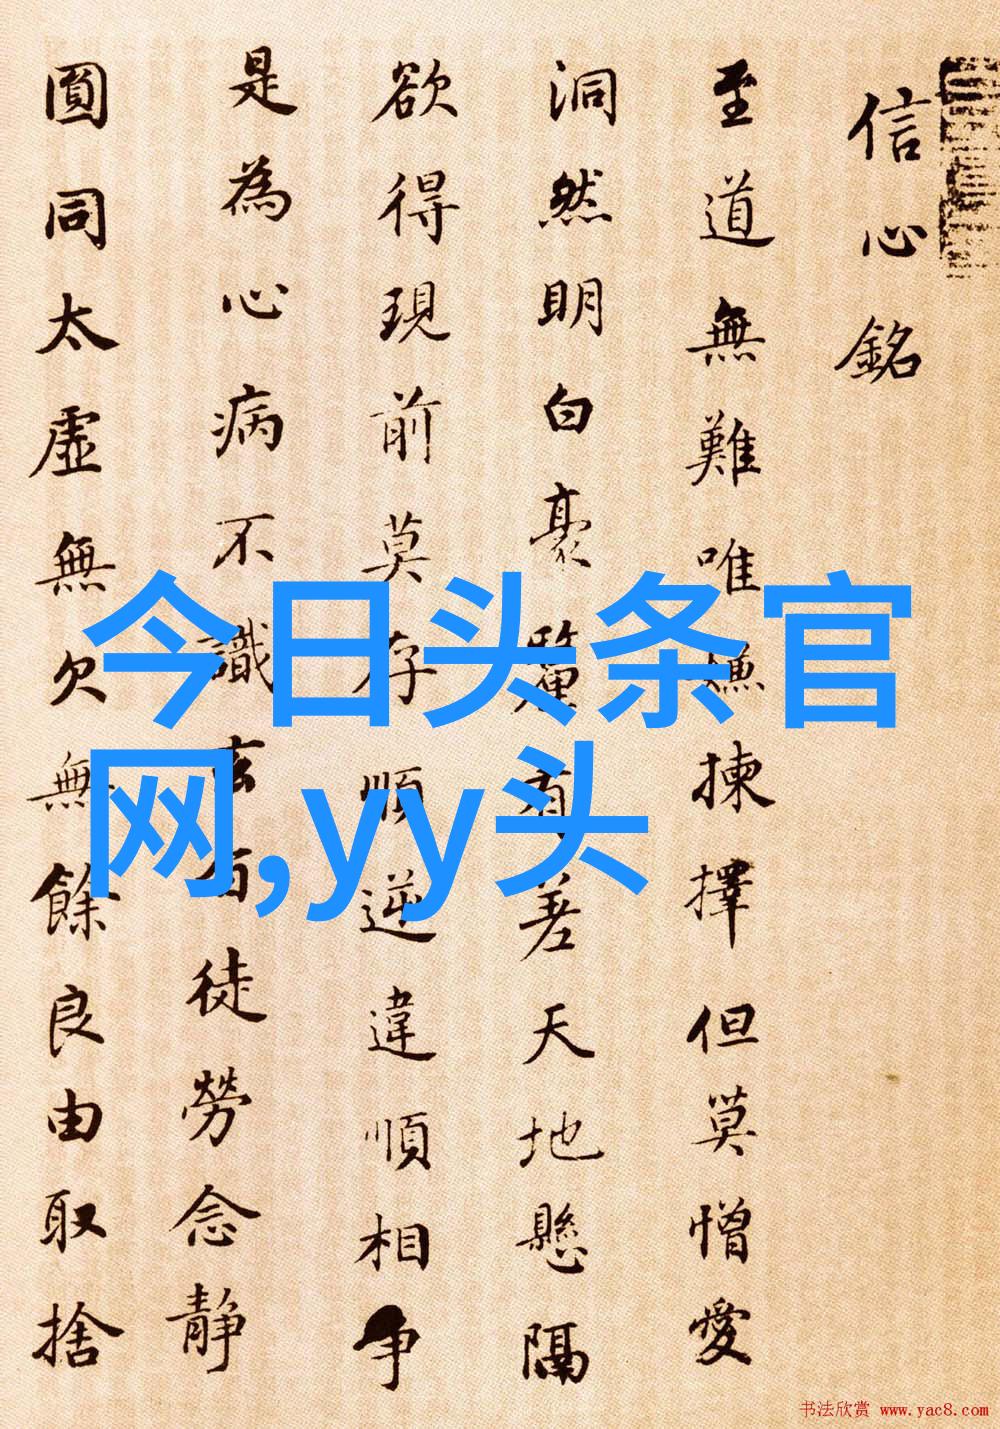 信心銘
至道無難唯嫌揀擇但莫憎愛
洞然明白豪釐有差天地懸隔
欲得現前莫存順逆違順相争
是為心病不識玄旨徒勞念静
圓同太虛無欠無餘良由取捨
今日头条官
网,yy头
书法欣赏 www.yac8.com